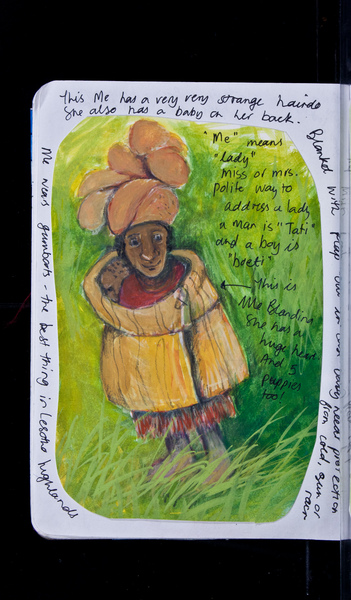 This Me has a very very strange hairdo
She also has a baby on her back.
"Me" means
"lady"
miss or mrs.
polite way to
address a lady
a man is "Tati"
and a boy is
"breti"
This is
Me Blandina
She has a
huge heart
And 5
puppies
too!
Blanket with flap our in can baby needs protection
from cold, sun or
rain
Me wears gumboots - the best thing in Lesotho highlands